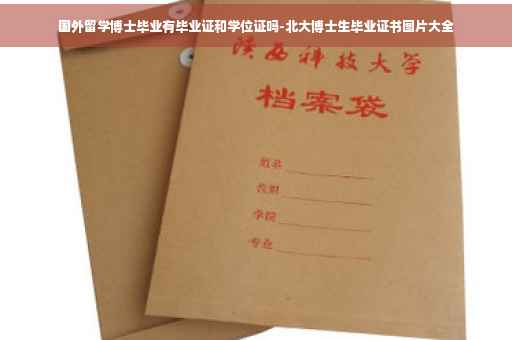 国外留学博士毕业有毕业证和学位证吗-北大博士生毕业证书图片大全
陕西科技大学
档案袋
姓名
性别
学院
专业